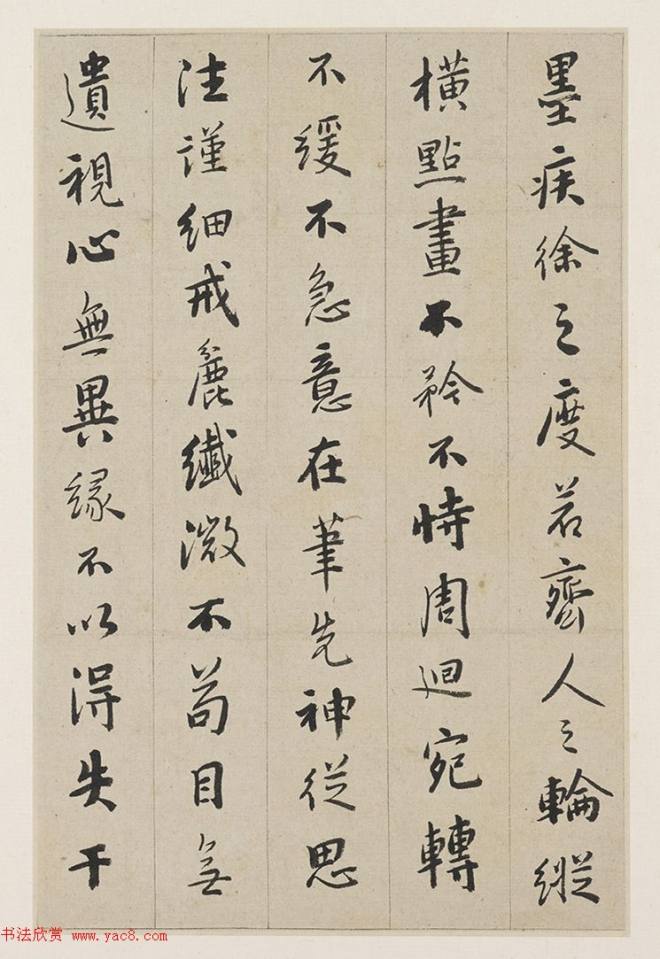 墨疾徐之度若齊人之輪縱
橫點畫不矜不恃周迴宛轉
不緩不急意在筆先神從思
注謹細戒麁纖微不苟目無
遺視心無異緣不以得失干
书法欣赏 www.yac8.com